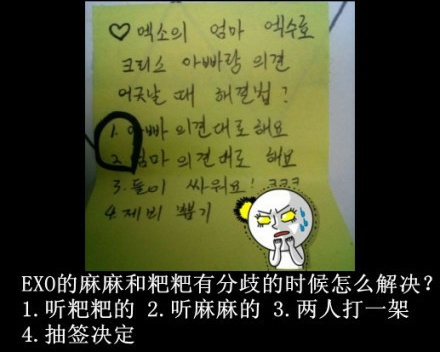 ♡ 엑소의 엄마 엑수호
크리스 아빠랑 의견
어긋날 때 해결법?
1. 아빠 의견대로 해요
2. 엄마 의견대로 해요
3. 둘이 싸워요! ㅋㅋㅋ
4. 제비 뽑기
EXO的麻麻和粑粑有分歧的时候怎么解决?
1.听粑粑的 2.听麻麻的 3.两人打一架
4.抽签决定